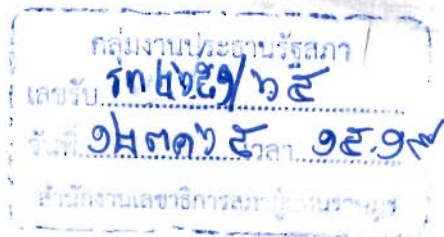 กลุ่มงานประธานรัฐสภา
เลขรับ
วันที่ ๑๒ ต.ค. ๖๕ เวลา ๑๕.๑๙
สำนักงานเลขาธิการสภาผู้แทนราษฎร